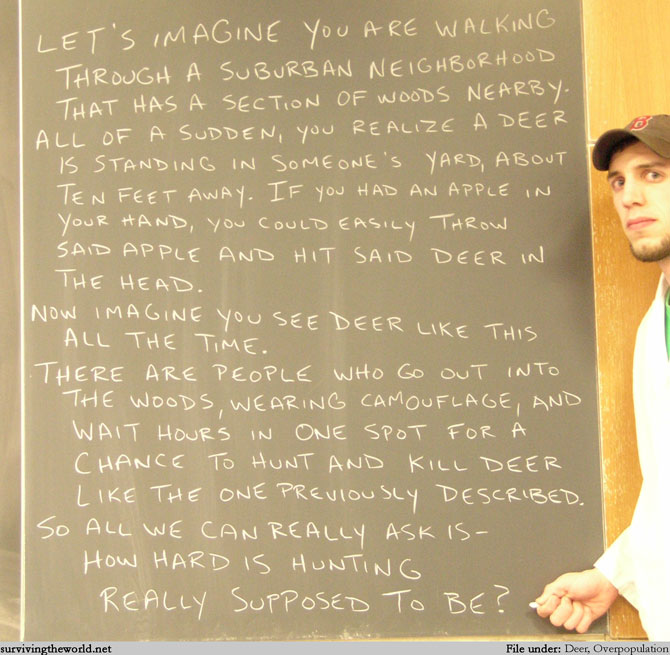 LET'S IMAGINE YOU ARE WALKING
THROUGH A SUBURBAN NEIGHBORHOOD
THAT HAS A SECTION OF WOODS NEARBY.
ALL OF A SUDDEN, YOU REALIZE A DEER
IS STANDING IN SOMEONE'S YARD, ABOUT
TEN FEET AWAY. IF YOU HAD AN APPLE IN
YOUR HAND, YOU COULD EASILY THROW
SAID APPLE AND HIT SAID DEER IN
THE HEAD.
NOW IMAGINE YOU SEE DEER LIKE THIS
ALL THE TIME.
THERE ARE PEOPLE WHO GO OUT INTO
THE WOODS, WEARING CAMOUFLAGE, AND
WAIT HOURS IN ONE SPOT FOR A
CHANCE TO HUNT AND KILL DEER
LIKE THE ONE PREVIOUSLY DESCRIBED.
SO ALL WE CAN REALLY ASK IS-
HOW HARD IS HUNTING
REALLY SUPPOSED TO BE?
B
survivingtheworld.net File under: Deer, Overpopulation